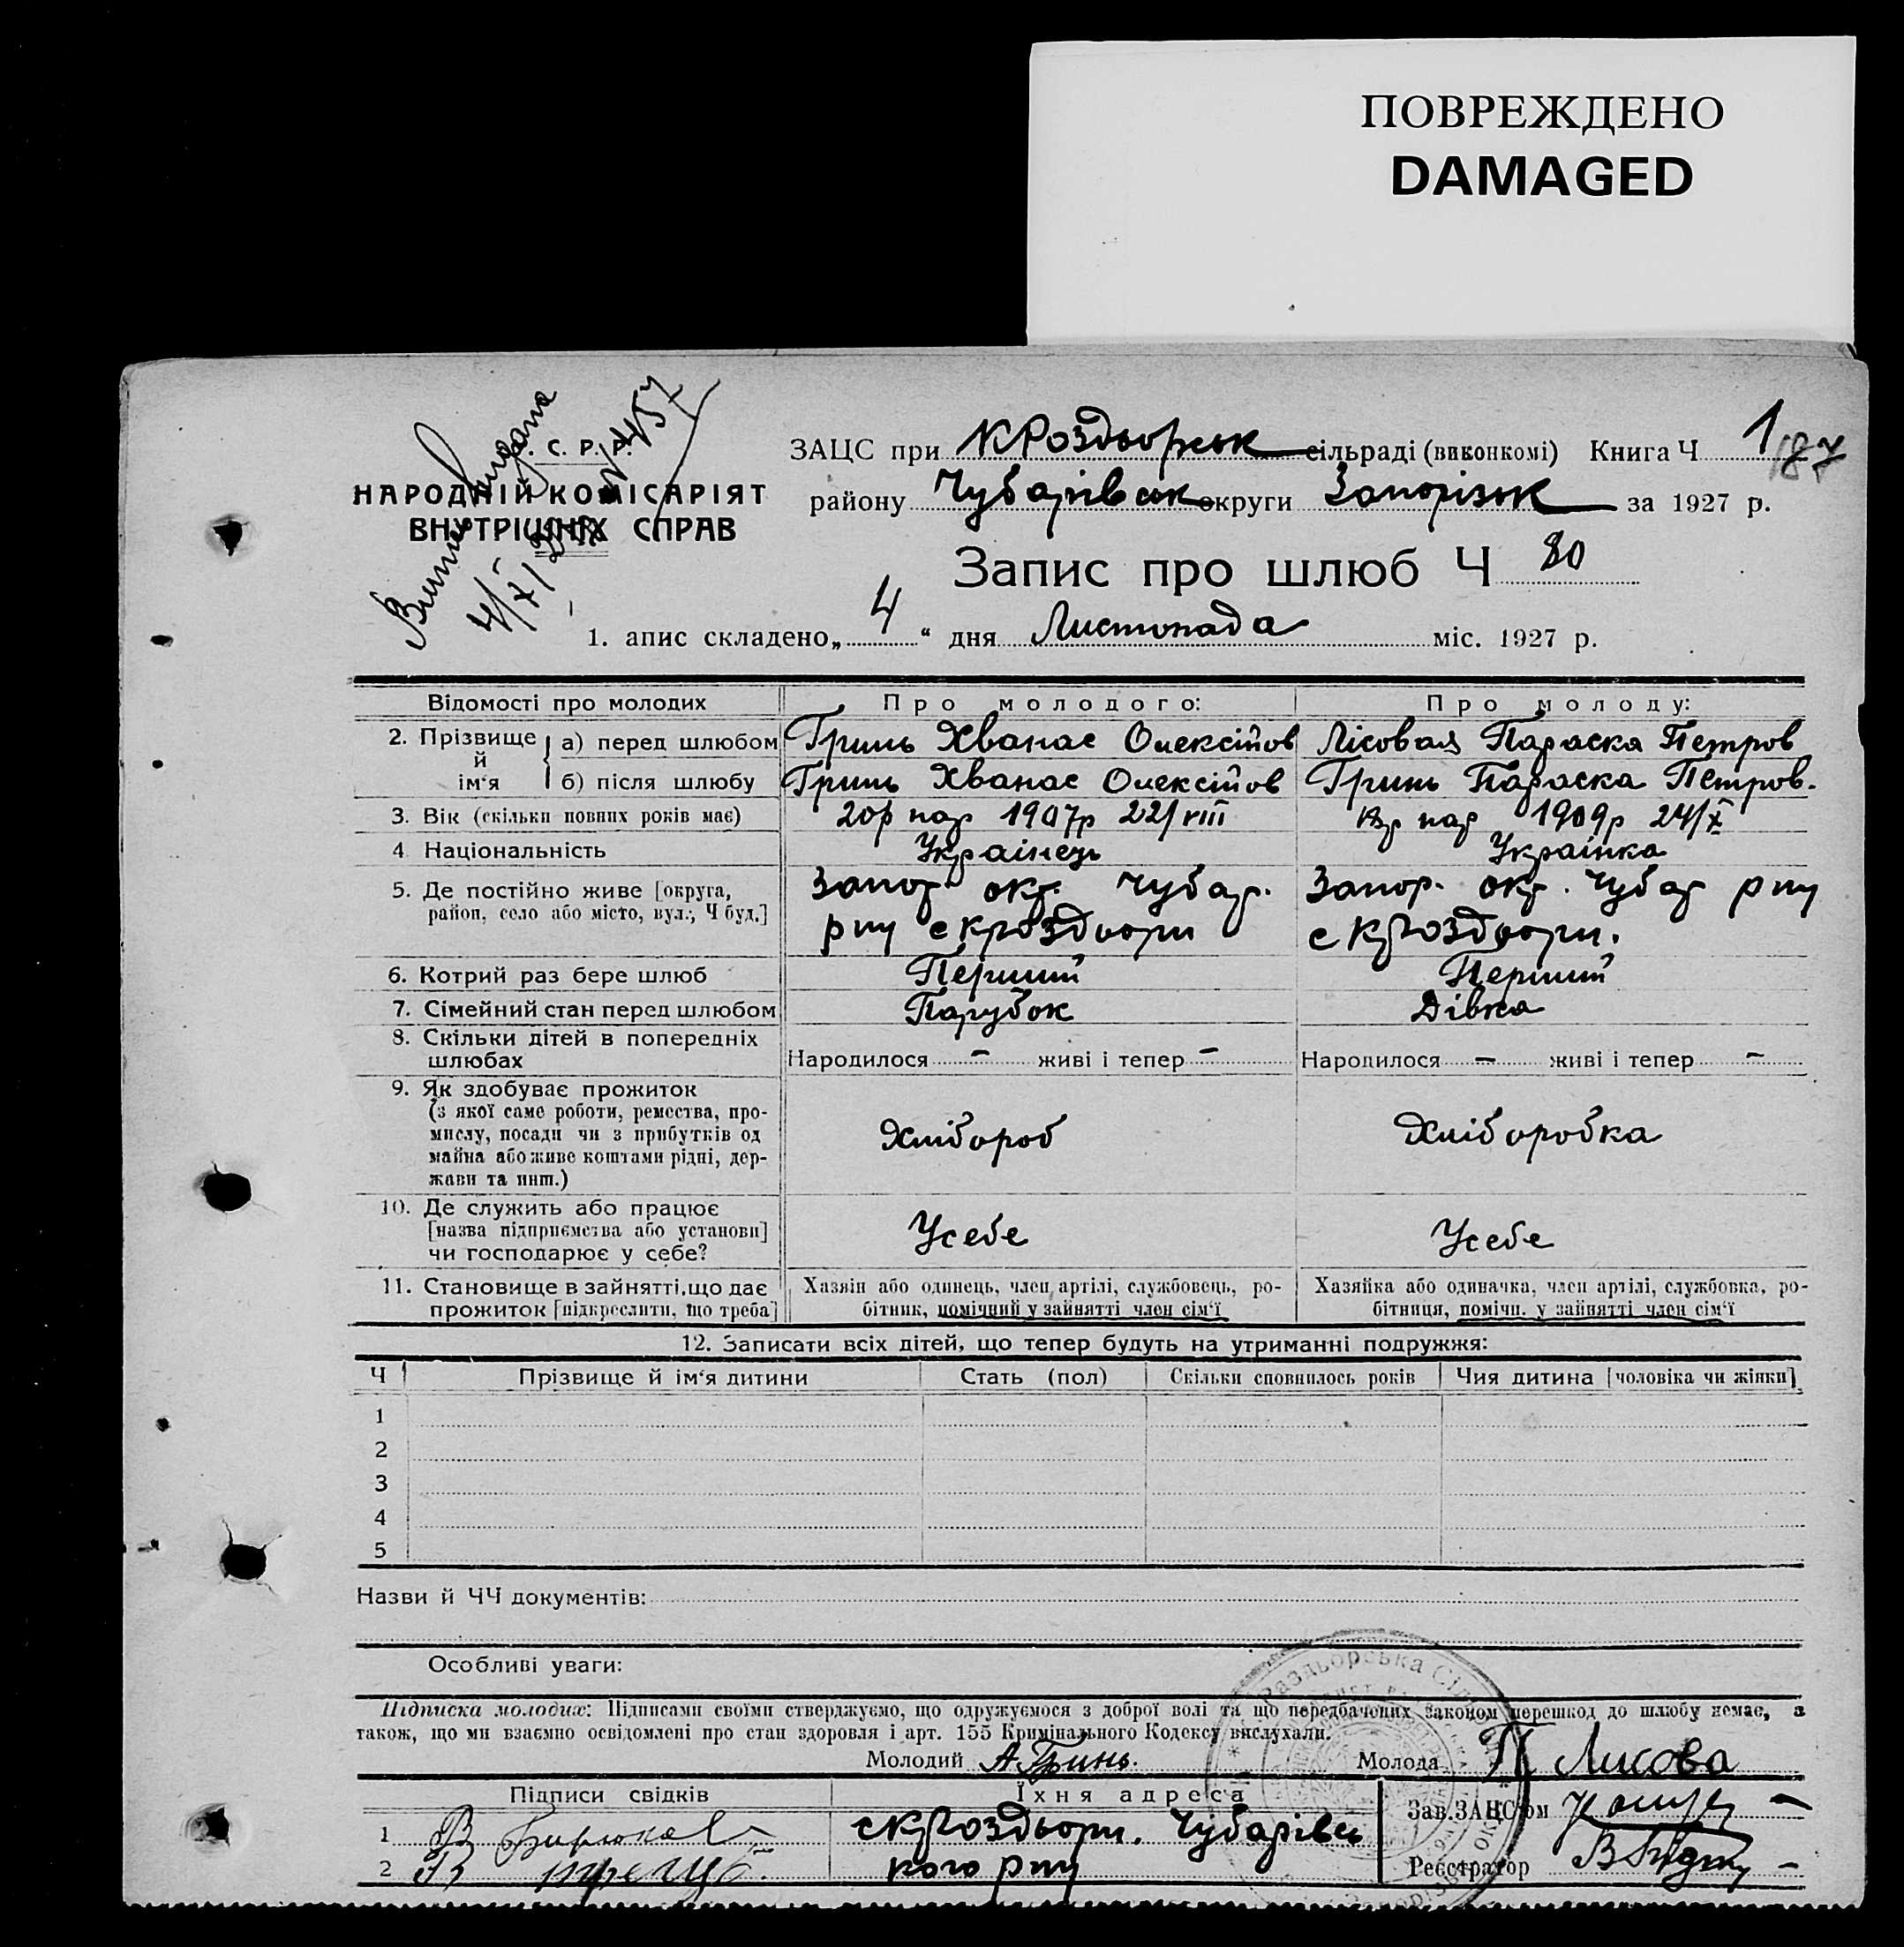 ПОВРЕЖДЕНО
DAMAGED
. С. Р. Р.
НАРОДНІЙ КОМІСАРІЯТ
ВНУТРІШНІХ СПРАВ
ЗАЦС при КРоздьорськ сільраді (виконкомі) Книга Ч 1 187
району Чубарівськ округи Запорізьк за 1927 р.
Запис про шлюб Ч 80
1. апис складено „ 4 “ дня Листопада міс. 1927 р.
Відомості про молодих Про молодого: Про молоду:
2. Прізвище й ім‘я а) перед шлюбом Гринь Хванас Олексійов Лісовая Параска Петров
б) після шлюбу Гринь Хванас Олексійов Гринь Параска Петров.
3. Вік (скільки повних років має) 20р нар 1907р 22/VIII 18р нар 1909р 24/X
4 Національність Українець Українка
5. Де постійно живе [округа, Запор. окр. Чубар. Запор. окр. Чубар рну
район, село або місто, вул., Ч буд.] рну с кроздьори с КРоздьори.
6. Котрий раз бере шлюб Перший Перший
7. Сімейний стан перед шлюбом Парубок Дівка
8. Скільки дітей в попередніх
шлюбах Народилося - живі і тепер - Народилося - живі і тепер -
9. Як здобуває прожиток
(з якої саме роботи, ремества, про-
мислу, посади чи з прибутків од Хлібороб Хліборобка
майна або живе коштами рідні, дер-
жави та инш.)
10. Де служить або працює
[назва підприємства або установи] Усебе Усебе
чи господарює у себе?
11. Становище в зайнятті, що дає Хазяїн або одинець, член артілі, службовець, ро- Хазяйка або одиначка, член артілі, службовка, ро-
прожиток [підкреслити, що треба] бітник, помічний у зайнятті член сім‘ї бітниця, помічн. у зайнятті член сім‘ї
12. Записати всіх дітей, що тепер будуть на утриманні подружжя:
Ч Прізвище й ім‘я дитини Стать (пол) Скільки сповнилось років Чия дитина [чоловіка чи жінки]
1
2
3
4
5
Назви й ЧЧ документів:
Особливі уваги:
Підписка молодих: Підписами своїми стверджуємо, що одружуємося з доброї волі та що передбачених законом перешкод до шлюбу немає, а
також, що ми взаємно освідомлені про стан здоровля і арт. 155 Кримінального Кодексу вислухали.
Молодий А Гринь. Молода П Лисова
Підписи свідків Їхня адреса Зав. ЗАЦС‘ом
1 В Бирюков с КРоздьори. Чубарівсь
2 кого рну Реєстратор